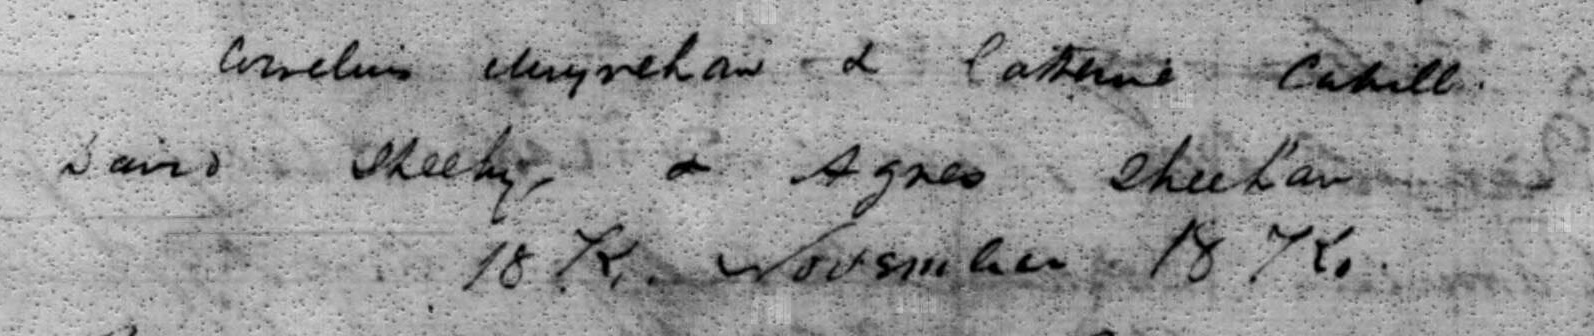 Cornelius Moynehan & Catherine Cahill.
David Sheehy, & Agnes Sheehan
18 November 18